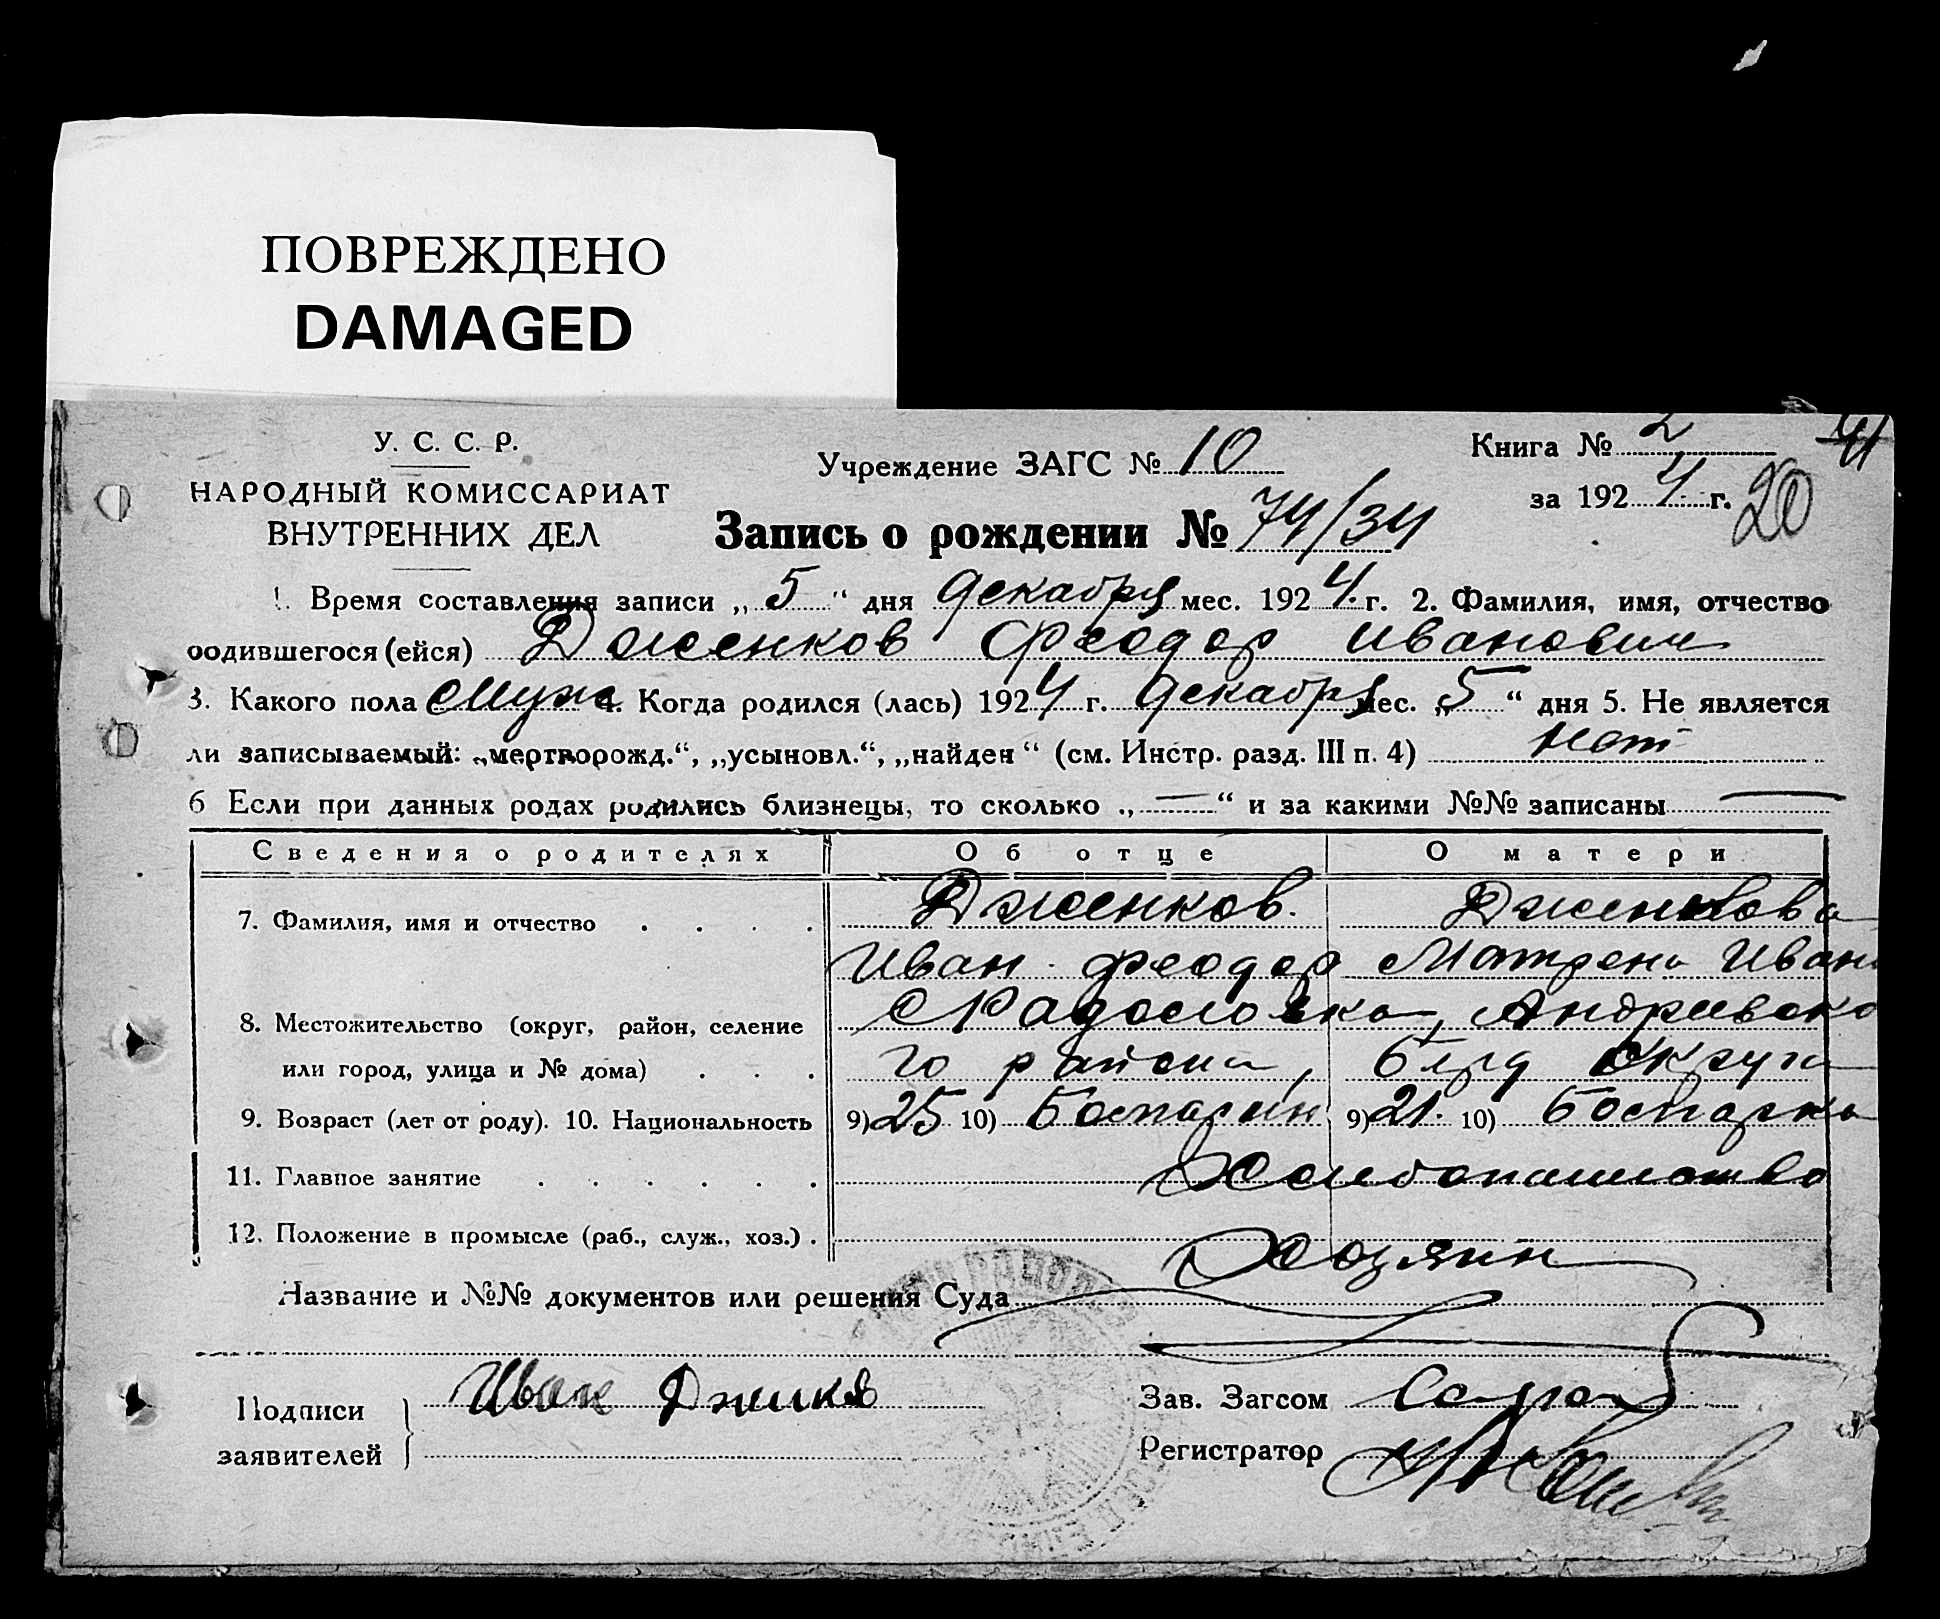 ПОВРЕЖДЕНО
DAMAGED
У. С. С. Р.
НАРОДНЫЙ КОМИССАРИАТ
ВНУТРЕННИХ ДЕЛ
Учреждение ЗАГС № 10
Книга № 2
за 1924 г. 20
Запись о рождении № 74/34
1. Время составления записи „5“ дня декабря мес. 1924 г. 2. Фамилия, имя, отчество
родившегося (ейся) Дженков Феодор Иванович
3. Какого пола Муж 4. Когда родился (лась) 1924 г. декабря мес. „5“ дня 5. Не является
ли записываемый: „мертворожд.“, „усыновл.“, „найден“ (см. Инстр. разд. III п. 4) нет
6 Если при данных родах родились близнецы, то сколько „—“ и за какими №№ записаны —
Сведения о родителях Об отце О матери
7. Фамилия, имя и отчество Дженков. Дженкова
Иван Феодор Матрена Иван
8. Местожительство (округ, район, селение с Радоловка, Андриевско
или город, улица и № дома) го района, Берд округа
9. Возраст (лет от роду). 10. Национальность 9) 25 10) Болгарин 9) 21. 10) Болгарка
11. Главное занятие Хлебопашество
12. Положение в промысле (раб., служ., хоз.) Хозяин
Название и №№ документов или решения Суда
Подписи заявителей Иван Дженков
Зав. Загсом
Регистратор